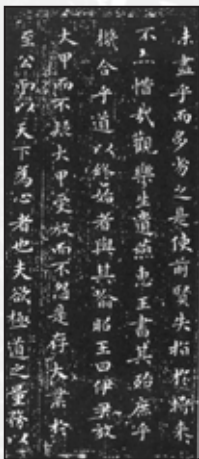 未盡乎而多劣之是使前賢失指於將來
不亦惜哉觀樂生遺燕惠王書其殆庶乎
機合乎道以終始者與其喻昭王曰伊尹放
大甲而不疑大甲受放而不怨是存大業於
至公而以天下為心者也夫欲極道之量務以